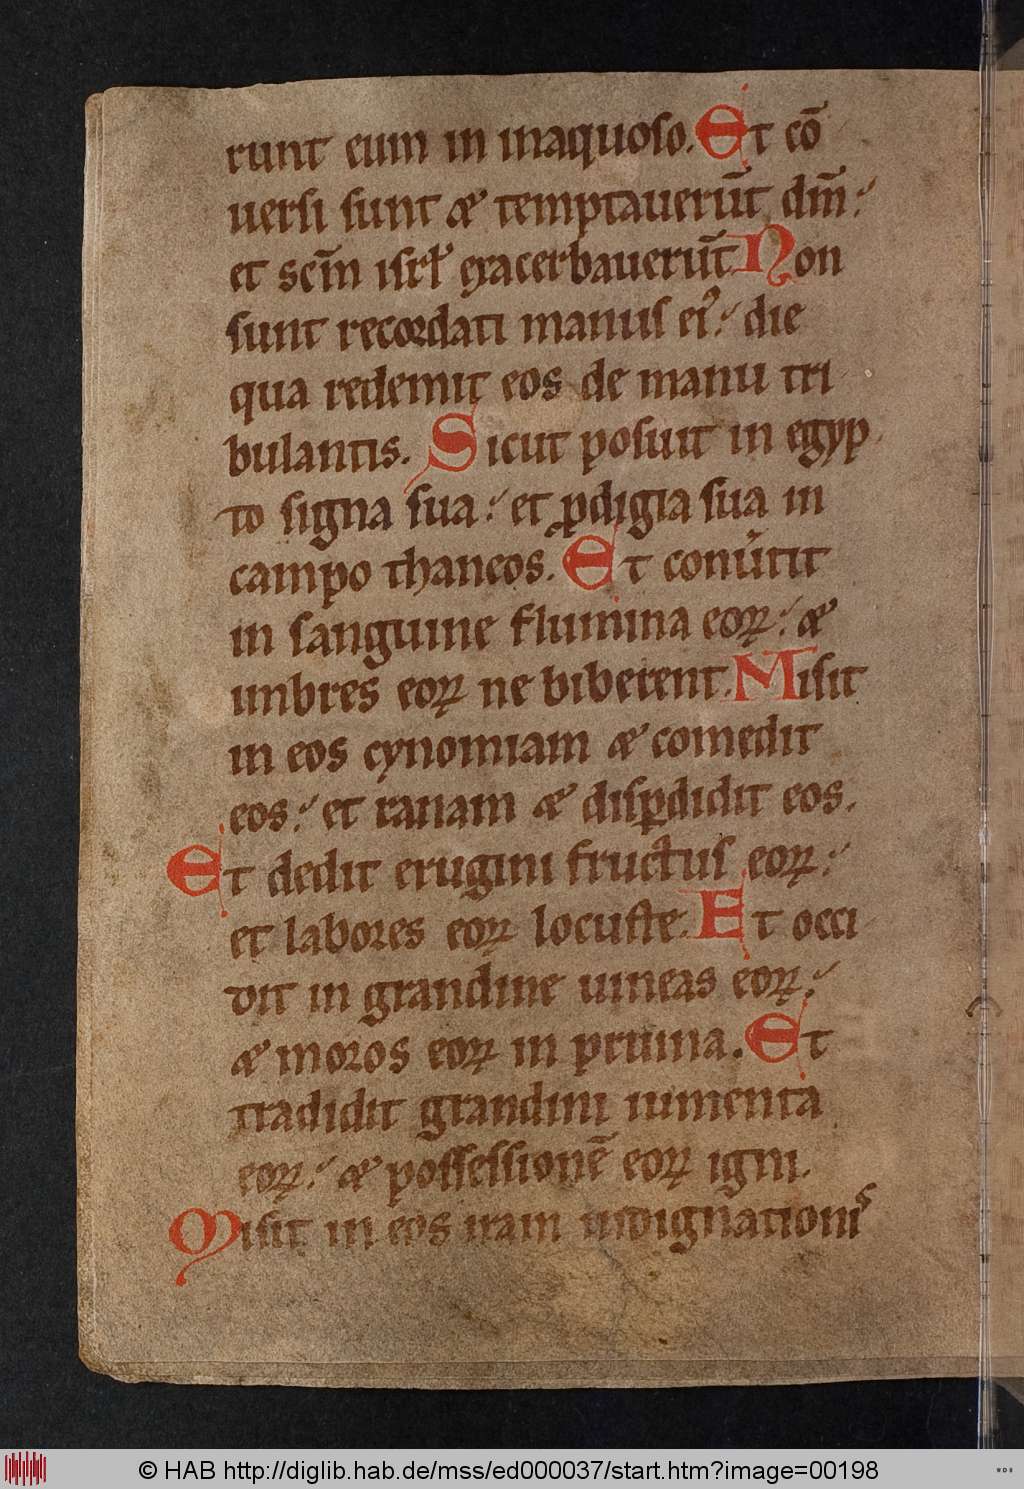 runt eum in inaquoso. Et cō
uersi sunt & temptauerūt dm̄:
et scm̄ isrl̓ exacerbauerūt Non
sunt recordati manus ei᾽: die
qua redemit eos de manu tri
bulantis. Sicut posuit in egyp
to signa sua: et ꝓdigia sua in
campo thaneos. Et conu̓tit
in sanguine flumina eoꝝ: &
imbres eoꝝ ne biberent. Misit
in eos cynomiam & comedit
eos: et ranam & disꝑdidit eos.
Et dedit erugini fructus eoꝝ:
et labores eoꝝ locuste. Et occi
dit in grandine uineas eoꝝ:
& moros eoꝝ in pruina. Et
tradidit grandini iumenta
eoꝝ: & possessionē eoꝝ igni.
Misit in eos iram indignationis
© HAB http://diglib.hab.de/mss/ed000037/start.htm?image=00198